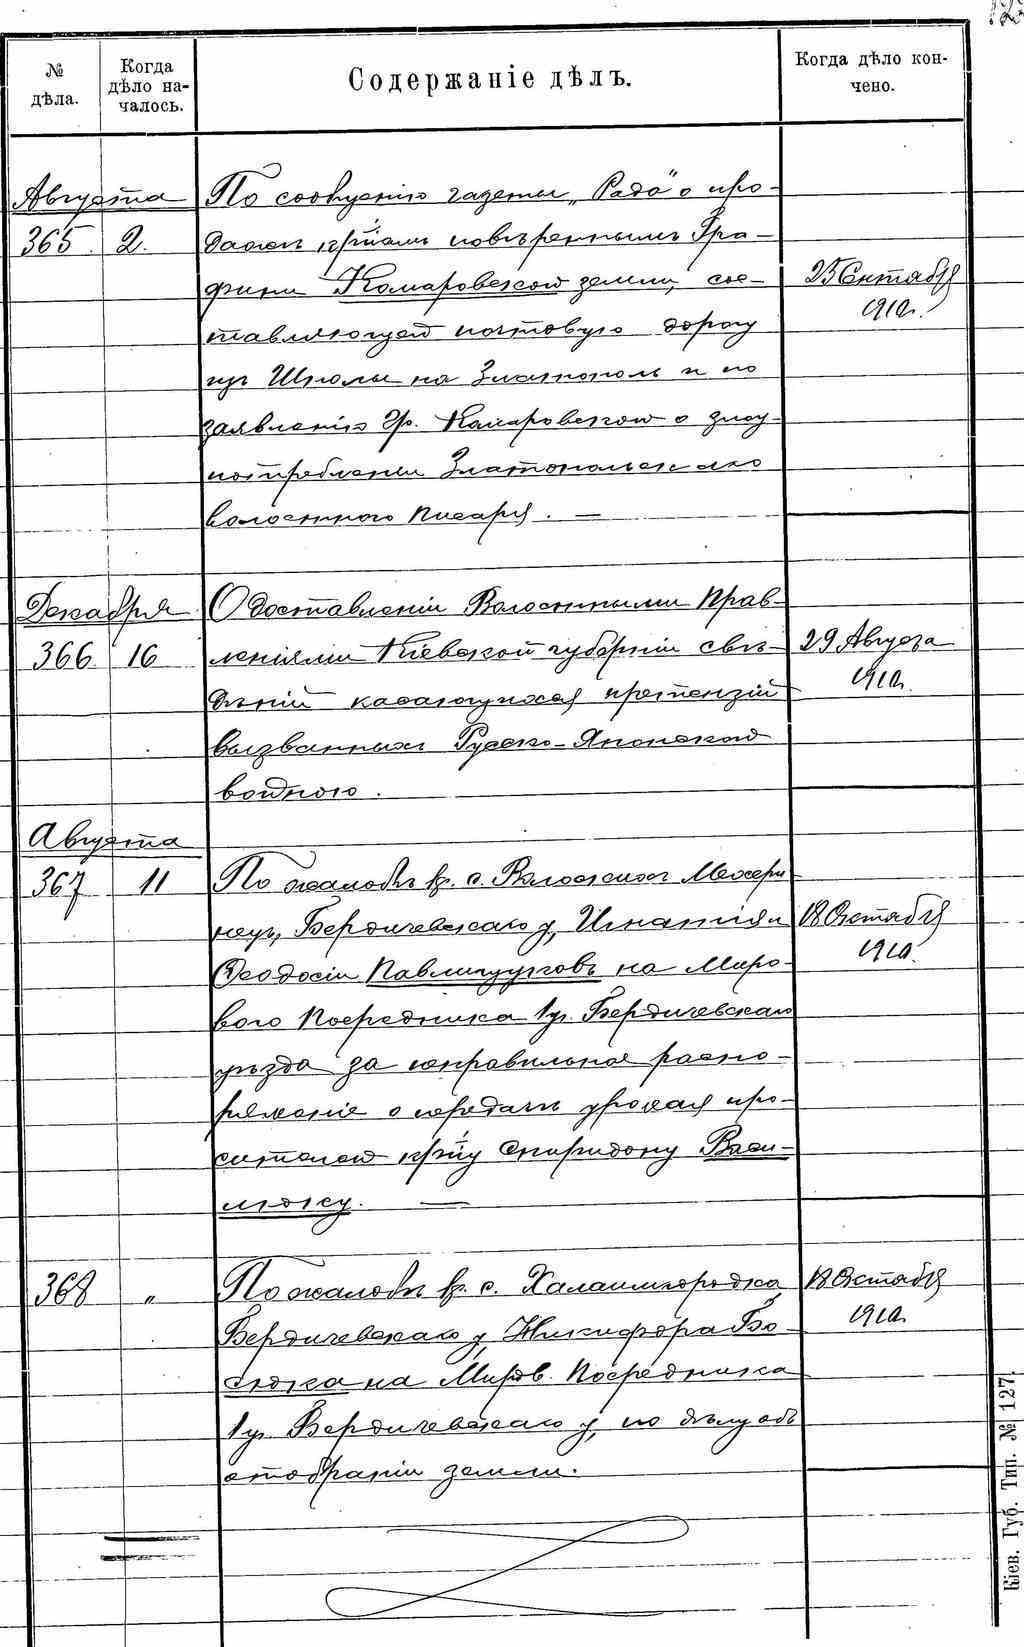 № дѣла.
Когда дѣло началось.
Содержаніе дѣлъ.
Когда дѣло кончено.
Августа
365. 2.
По сообщенію газеты „Рада" о про-
дажѣ крʼтіамъ повѣреннымъ Гра-
фини Комаровской земли, сос-
тавляющей почтовую дорогу
изъ Шполы на Златополь и по
заявленію Гр. Комаровской о злоу-
потребленіи Златопольскаго
волостного писаря. —
25 Сентября
1910г.
Декабря
366 16
О доставленіи Волостными Прав-
леніями Кіевской губерніи свѣ-
дѣній касающихся претензій
вызванныхъ Русско-Японской
войною.
29 Августа
1910г.
Августа
367 11
По жалобѣ кр. с. Волосскихъ Мехери
нецъ, Бердичевскаго у, Игнатія и
Ѳеодосіи Павлищуковъ на Миро-
вого Посредника 1 уч. Бердичевскаго
уѣзда за неправильное распо-
ряженіе о передачѣ урожая про-
сителей крʼтіну Спиридону Васи-
люку. —
18 Октября
1910г.
368 „
По жалобѣ кр. с. Халаимгородка,
Бердичевскаго у, Никифора Бо-
сюка на Миров. Посредника
1 уч. Бердичевскаго у, по дѣлу объ
отобраніи земли.
18 Октября
1910г.
Кіев. Губ. Тип. № 127.